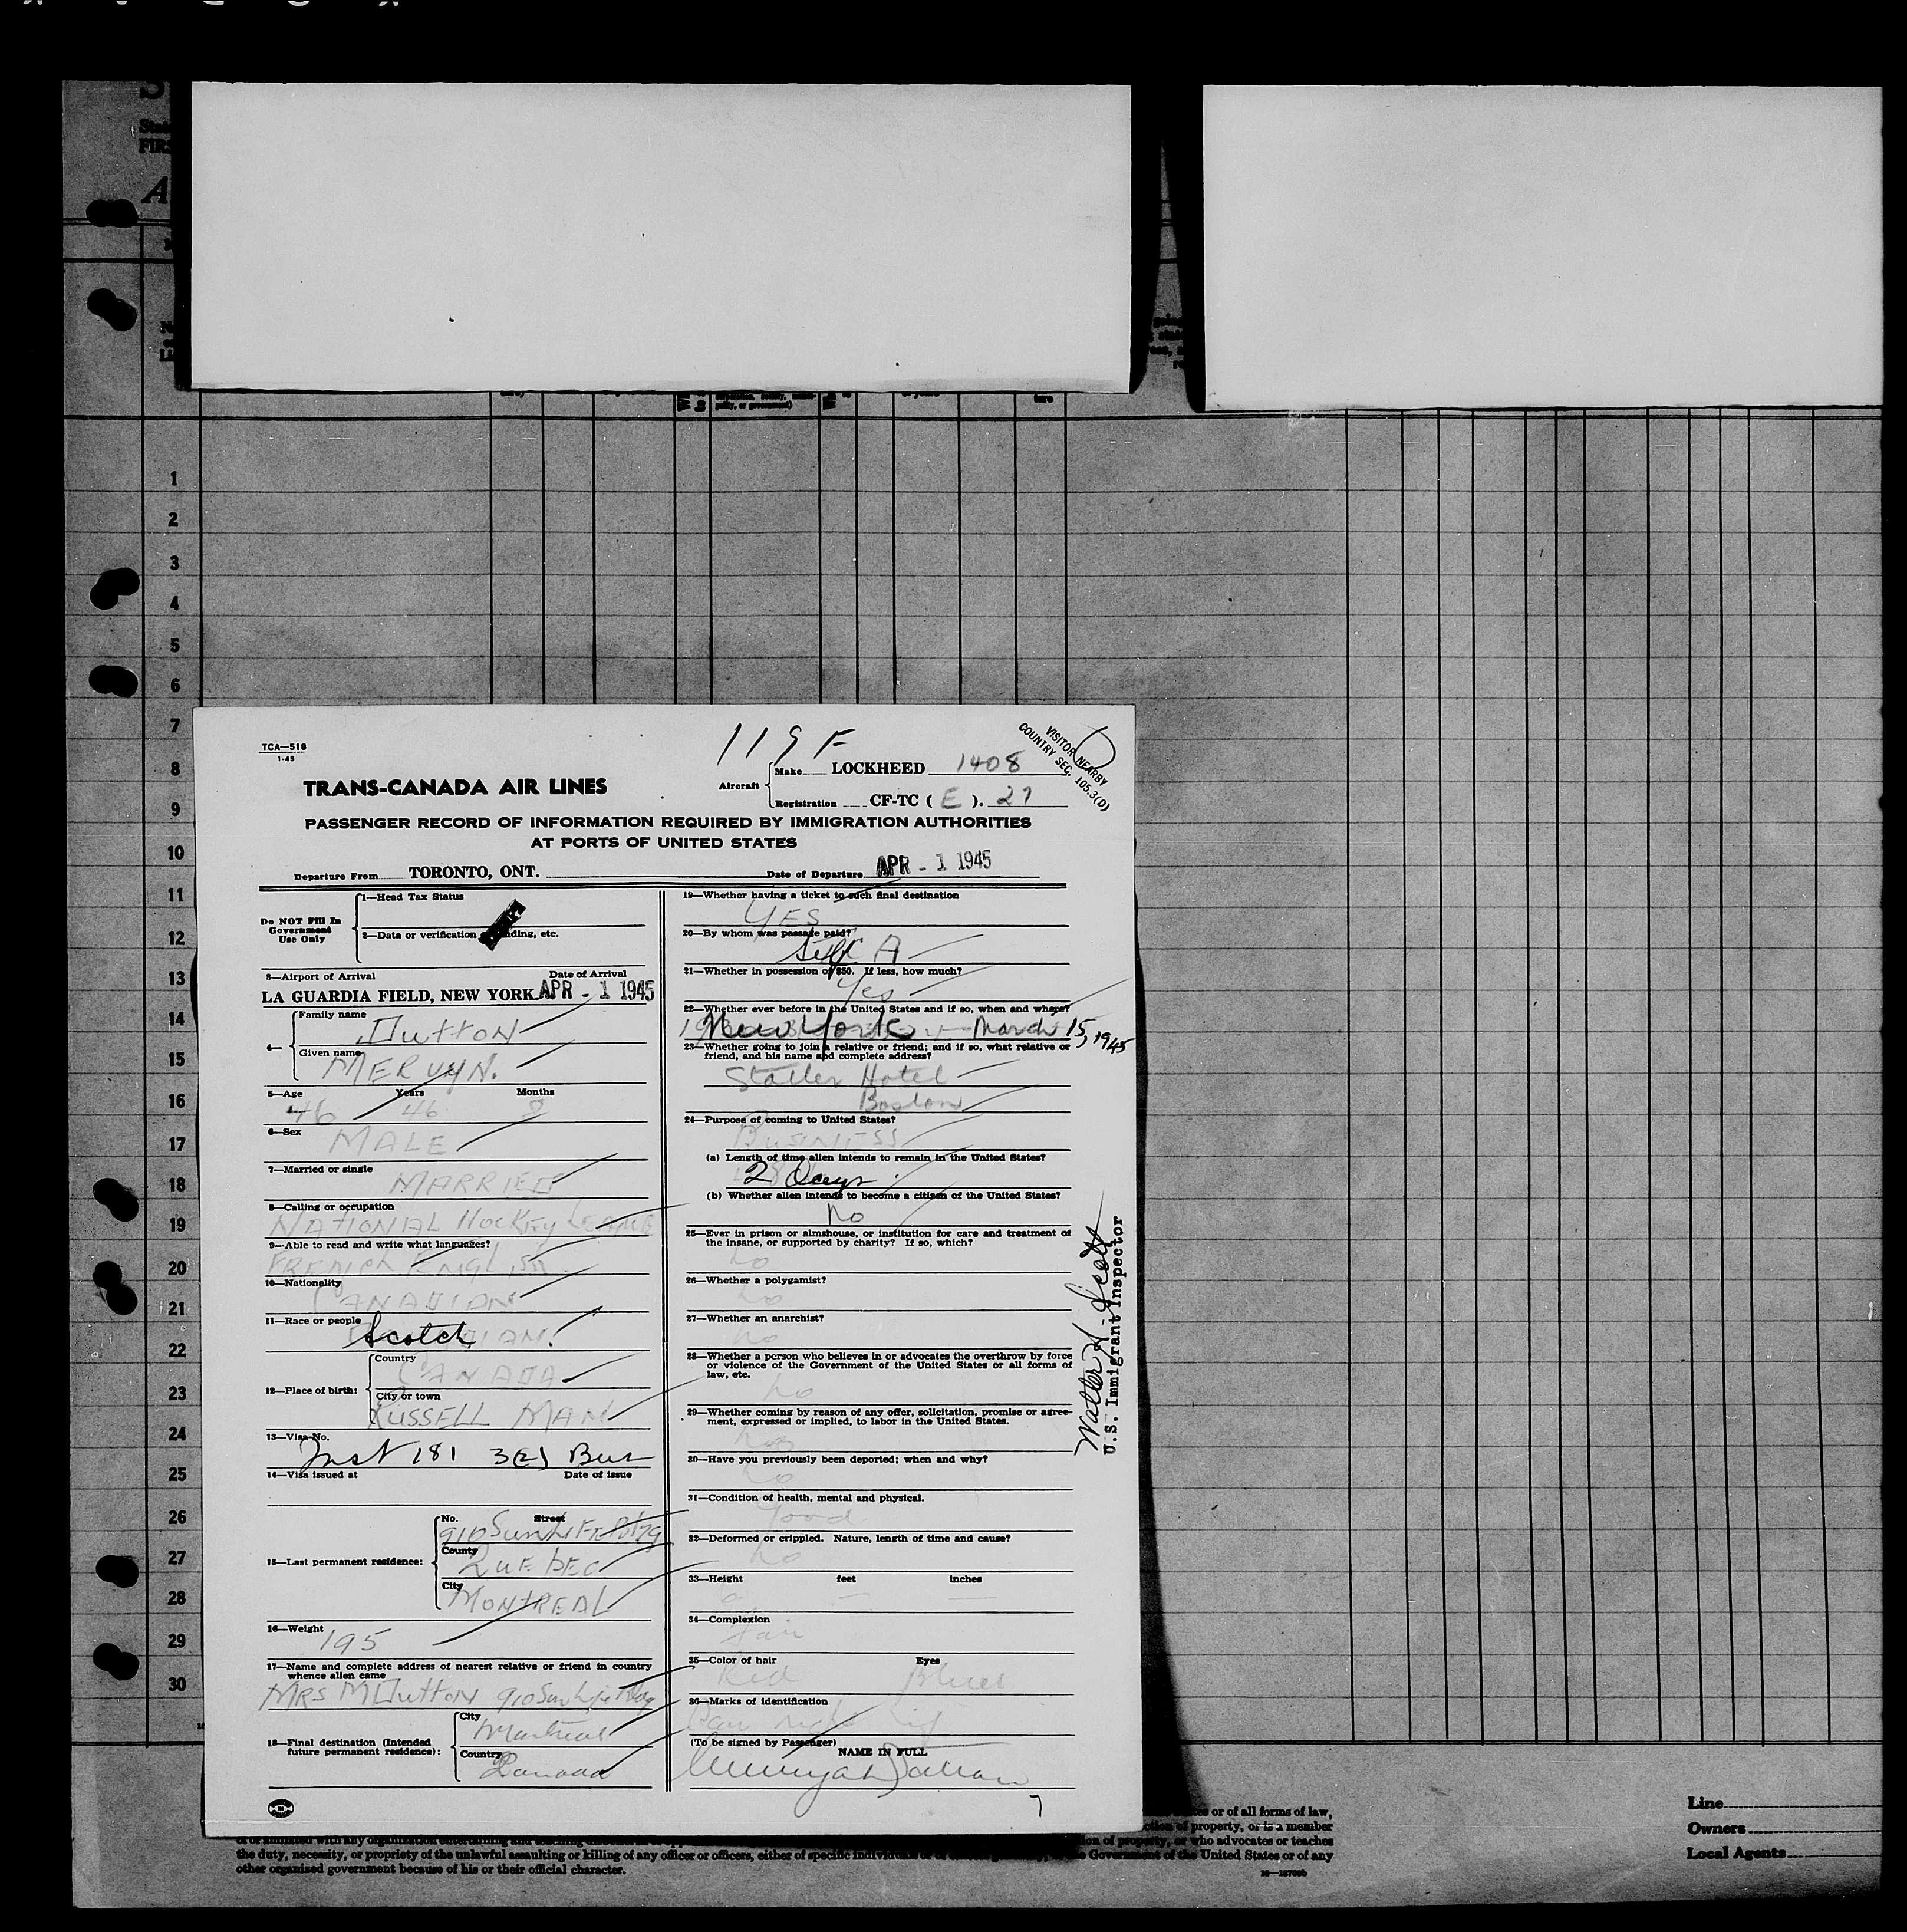 119 F
TCA—518
1-45
VISITOR NEARBY
COUNTRY SEC. 105.3(D)
TRANS-CANADA AIR LINES
Aircraft
Make LOCKHEED 1408
Registration CF-TC ( E ). 27
PASSENGER RECORD OF INFORMATION REQUIRED BY IMMIGRATION AUTHORITIES
AT PORTS OF UNITED STATES
Departure From TORONTO, ONT. Date of Departure APR - 1 1945
Do NOT Fill In
Government
Use Only
1—Head Tax Status
2—Data or verification etc.
3—Airport of Arrival Date of Arrival
LA GUARDIA FIELD, NEW YORK. APR - 1 1945
4—
Family name
DUTTON
Given name
MERVYN.
5—Age Years Months
46 46 8
6—Sex
MALE
7—Married or single
MARRIED
8—Calling or occupation
NATIONAL HOCKEY LEAGUE
9—Able to read and write what languages?
FRENCH ENGLISH
10—Nationality
CANADIAN
11—Race or people
Scotch
12—Place of birth:
Country
CANADA
City or town
RUSSELL MAN
13—Visa No.
Inst 181 3(2) Bus
14—Visa issued at Date of issue
15—Last permanent residence:
No. Street
910 Sun Life Bldg
County
QUEBEC
City
MONTREAL
16—Weight
195
17—Name and complete address of nearest relative or friend in country
whence alien came
MRS M DUTTON 910 Sun Life Bldg
18—Final destination (Intended
future permanent residence):
City
Montreal
Country
Canada
19—Whether having a ticket to such final destination
YES
20—By whom was passage paid?
Self
21—Whether in possession of $50. If less, how much?
Yes
22—Whether ever before in the United States and if so, when and where?
New York March 15, 1945
23—Whether going to join a relative or friend; and if so, what relative or
friend, and his name and complete address?
Statler Hotel
Boston
24—Purpose of coming to United States?
BUSINESS
(a) Length of time alien intends to remain in the United States?
2 Days
(b) Whether alien intends to become a citizen of the United States?
No
25—Ever in prison or almshouse, or institution for care and treatment of
the insane, or supported by charity? If so, which?
No
26—Whether a polygamist?
No
27—Whether an anarchist?
No
28—Whether a person who believes in or advocates the overthrow by force
or violence of the Government of the United States or all forms of
law, etc.
No
29—Whether coming by reason of any offer, solicitation, promise or agree-
ment, expressed or implied, to labor in the United States.
No
30—Have you previously been deported; when and why?
No
31—Condition of health, mental and physical.
Good
32—Deformed or crippled. Nature, length of time and cause?
No
33—Height feet inches
34—Complexion
Fair
35—Color of hair Eyes
Red Blue
36—Marks of identification
(To be signed by Passenger)
NAME IN FULL
7
Walter H. Scott
U.S. Immigrant Inspector
1
2
3
4
5
6
7
8
9
10
11
12
13
14
15
16
17
18
19
20
21
22
23
24
25
26
27
28
29
30
or of all forms of law,
of property, or is a member
of property, or who advocates or teaches
the duty, necessity, or propriety of the unlawful assaulting or killing of any officer or officers, either of specific Government of the United States or of any
other organised government because of his or their official character.
Line
Owners
Local Agents